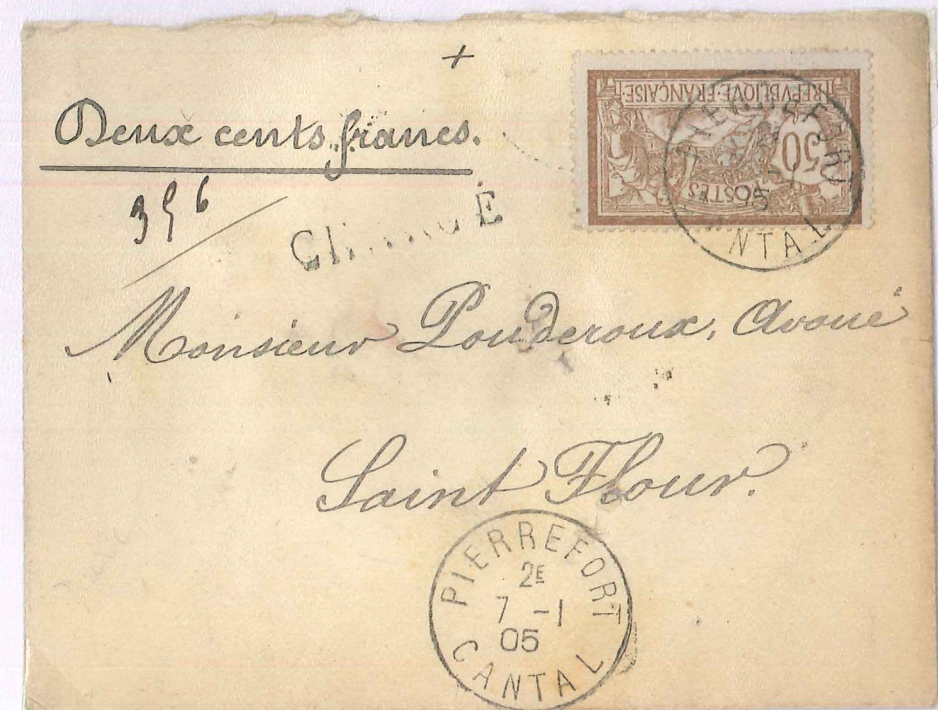 +
Deux cents francs.
396
CHARGÉ
REPVBLIQVE·FRANÇAISE
50
POSTES
PIERREFORT
05
CANTAL
Monsieur Pouderoux, Avoué
Saint Flour.
PIERREFORT
2E
7 -1
05
CANTAL